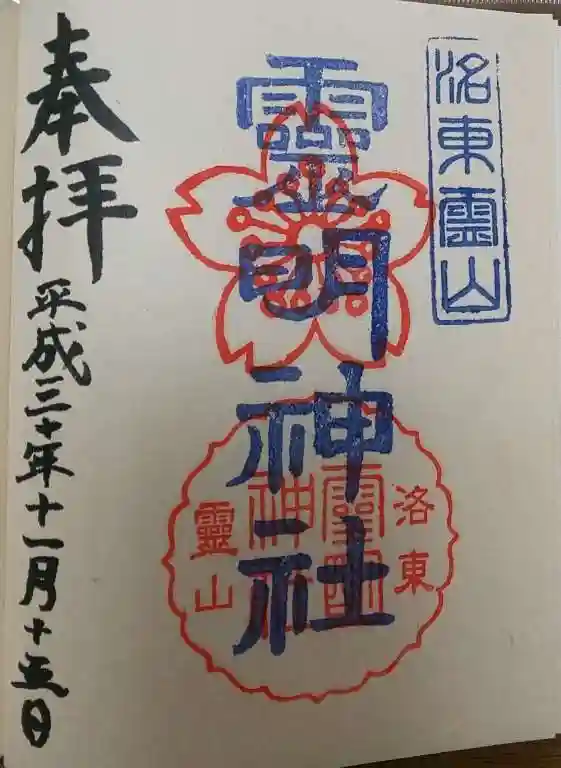 洛東霊山
靈明神社
洛東
靈明
神社
靈山
奉拝
平成三十年十一月十五日